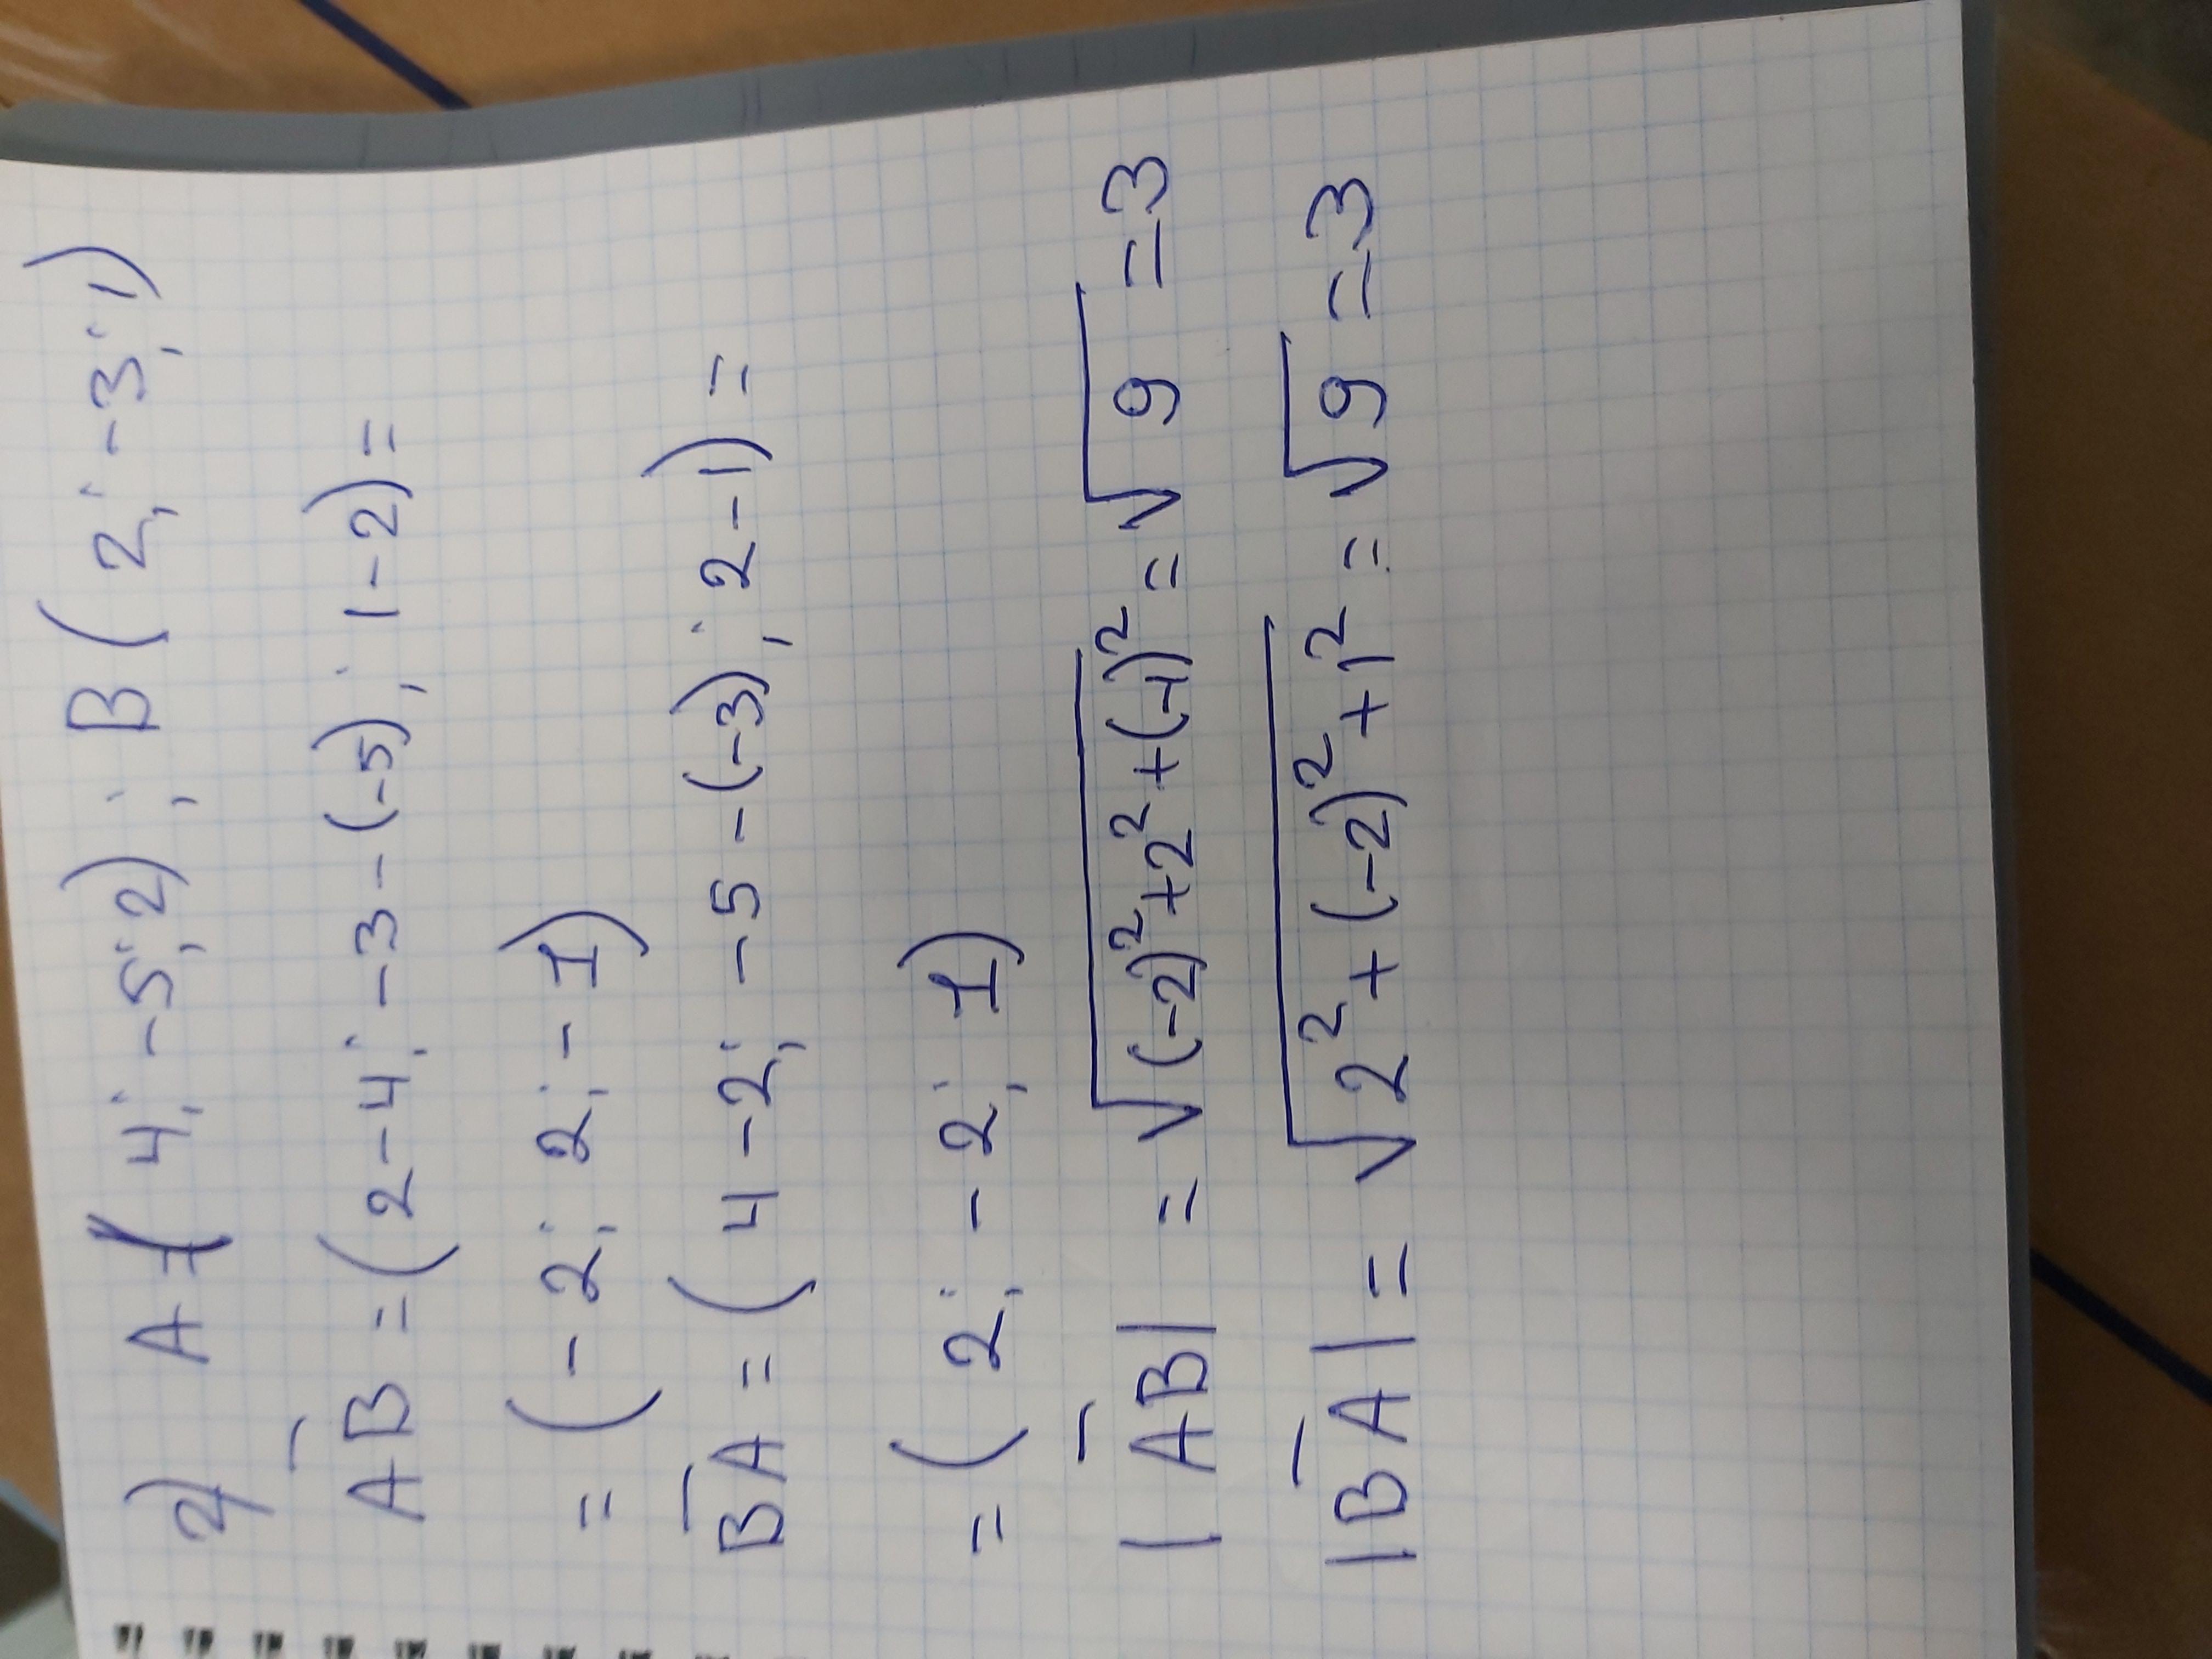 2) A (4; -5; 2); B (2; -3; 1)
A͞B = (2-4; -3-(-5); 1-2) =
= (-2; 2; -1)
B͞A = (4-2; -5-(-3); 2-1) =
= (2; -2; 1)
|A͞B| = √(-2)²+2²+(-1)² = √9 = 3
|B͞A| = √2²+(-2)²+1² = √9 = 3